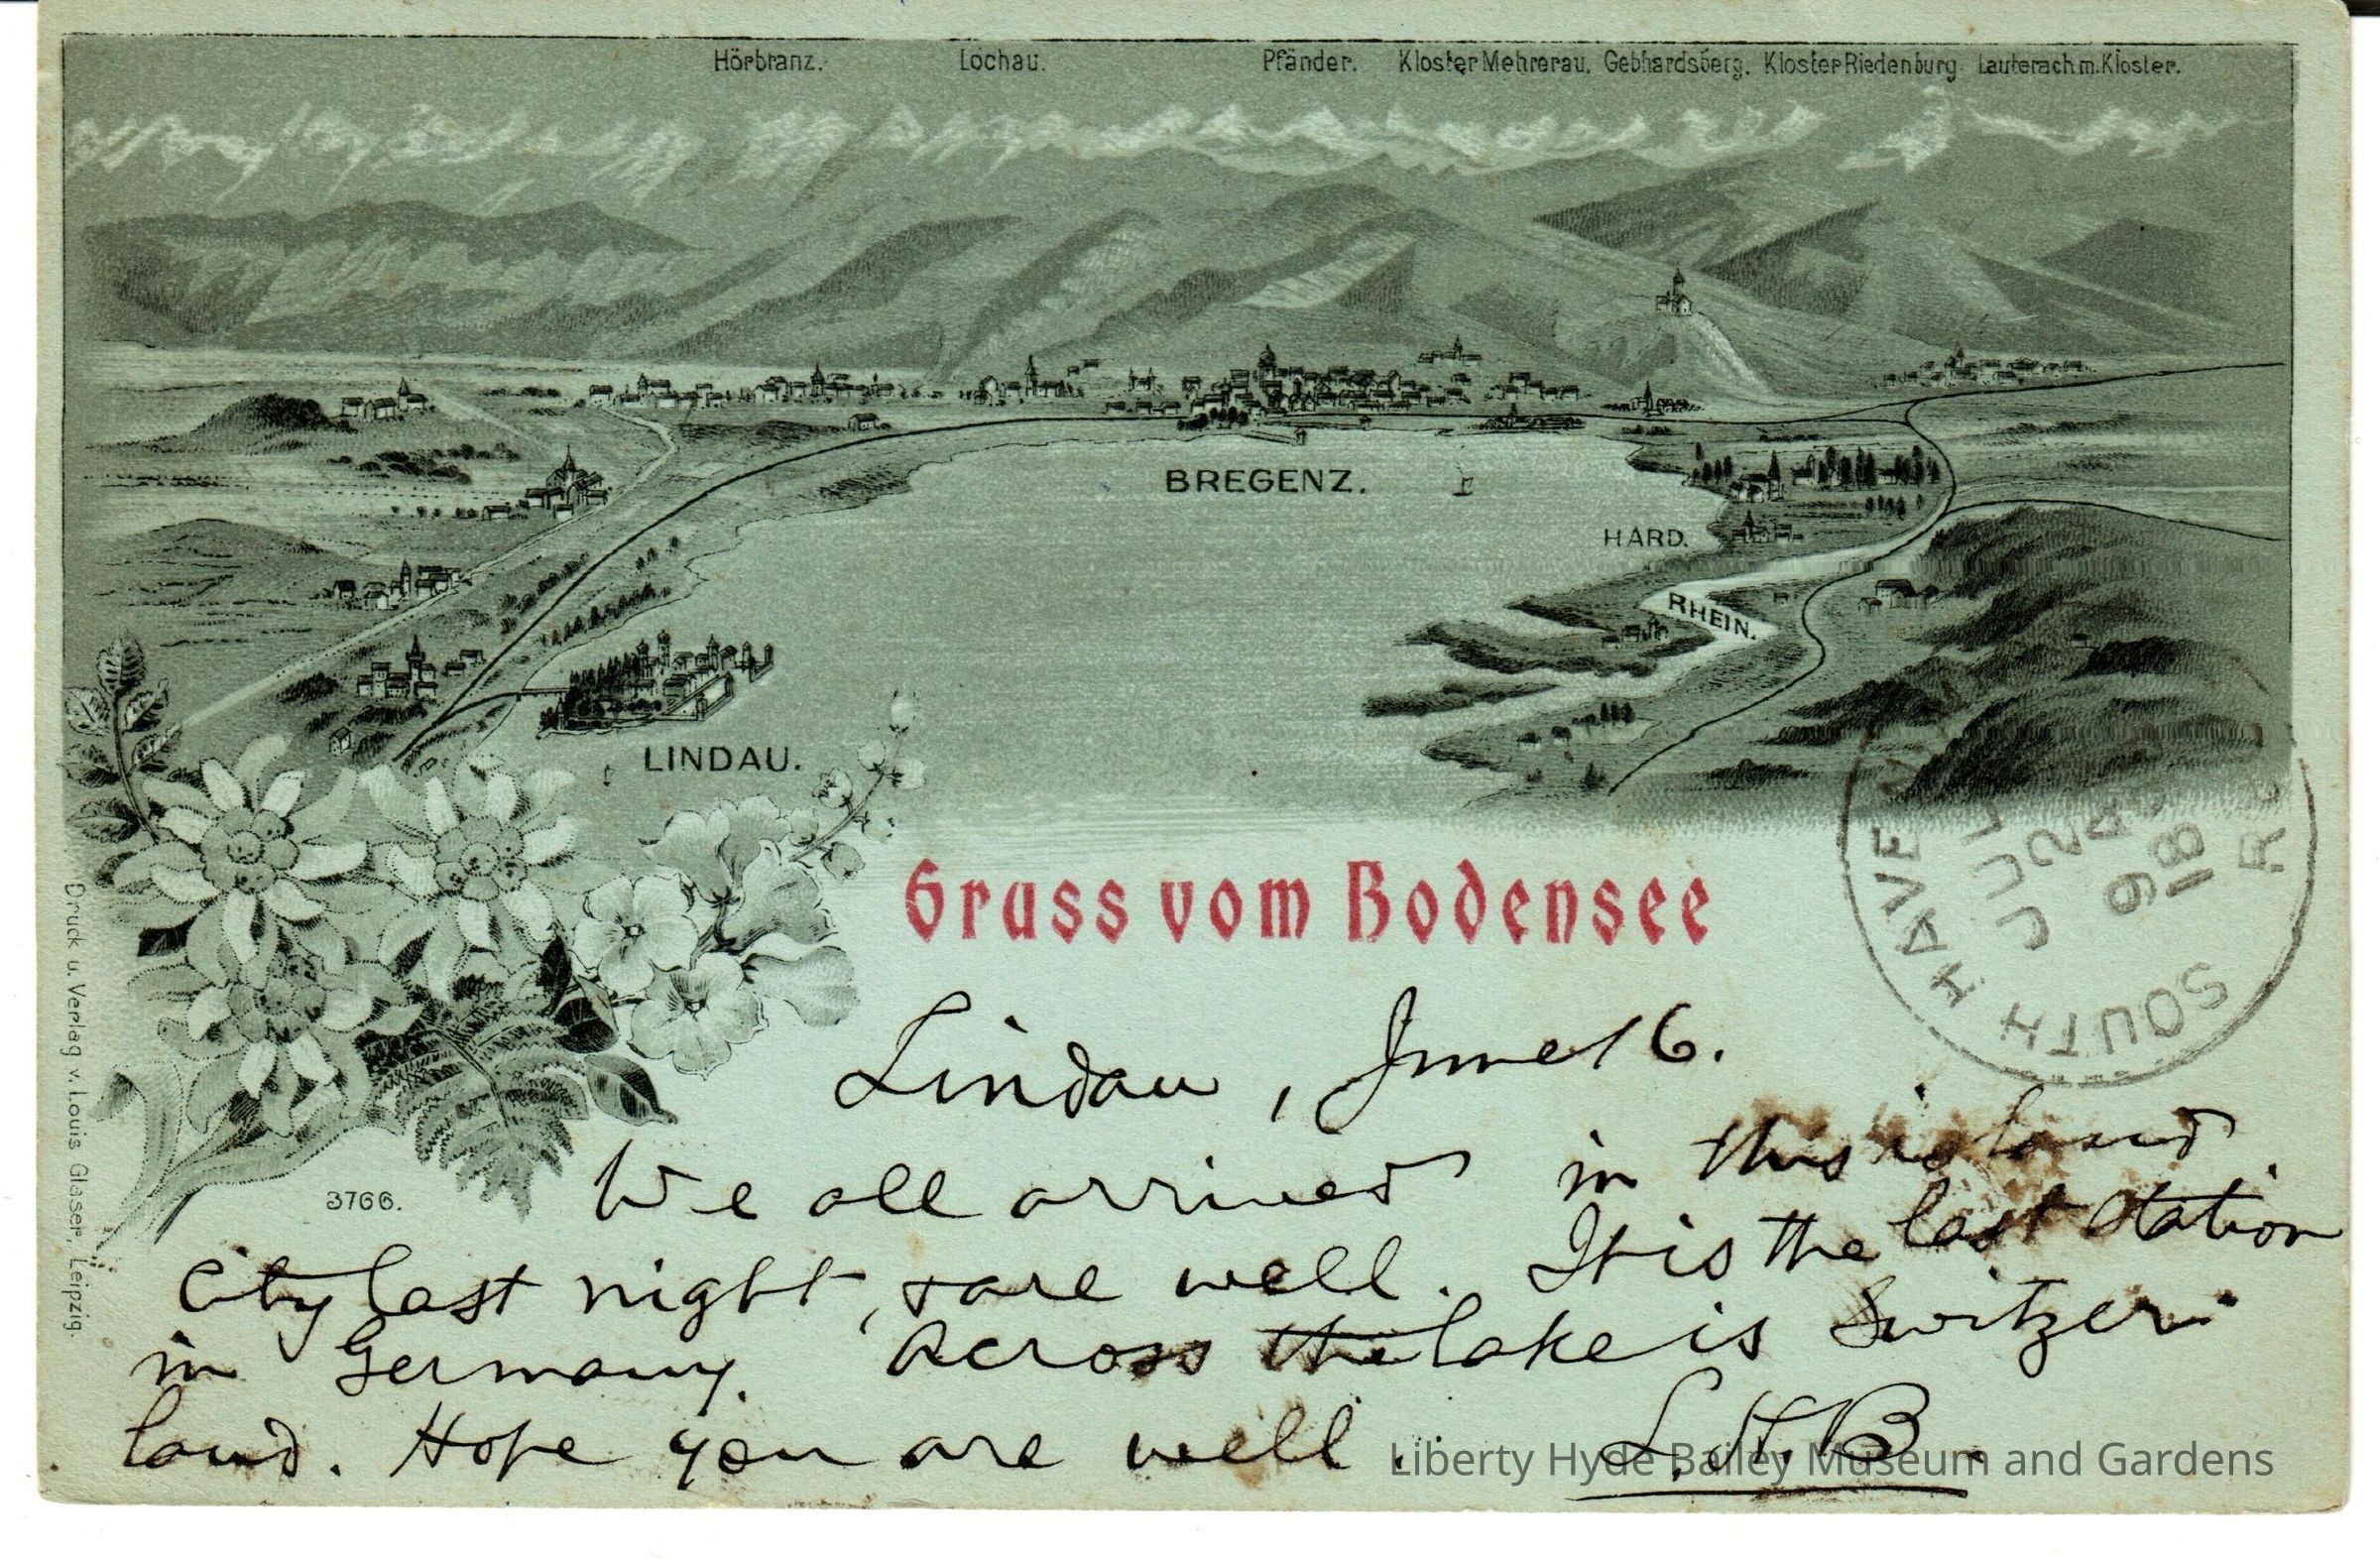 Hörbranz. Lochau. Pfänder. Kloster Mehrerau. Gebhardsberg. Kloster Riedenburg Lauterach m. Kloster.
BREGENZ.
HARD.
RHEIN.
LINDAU.
Gruss vom Bodensee
SOUTH HAVEN
JUL
24
9
18
R
Lindau, June 16.
We all arrived in this island
city last night, & are well. It is the last station
in Germany. Across the lake is Switzer-
land. Hope you are well. L.H.B.
3766.
Druck u. Verlag v. Louis Glaser, Leipzig.
Liberty Hyde Bailey Museum and Gardens